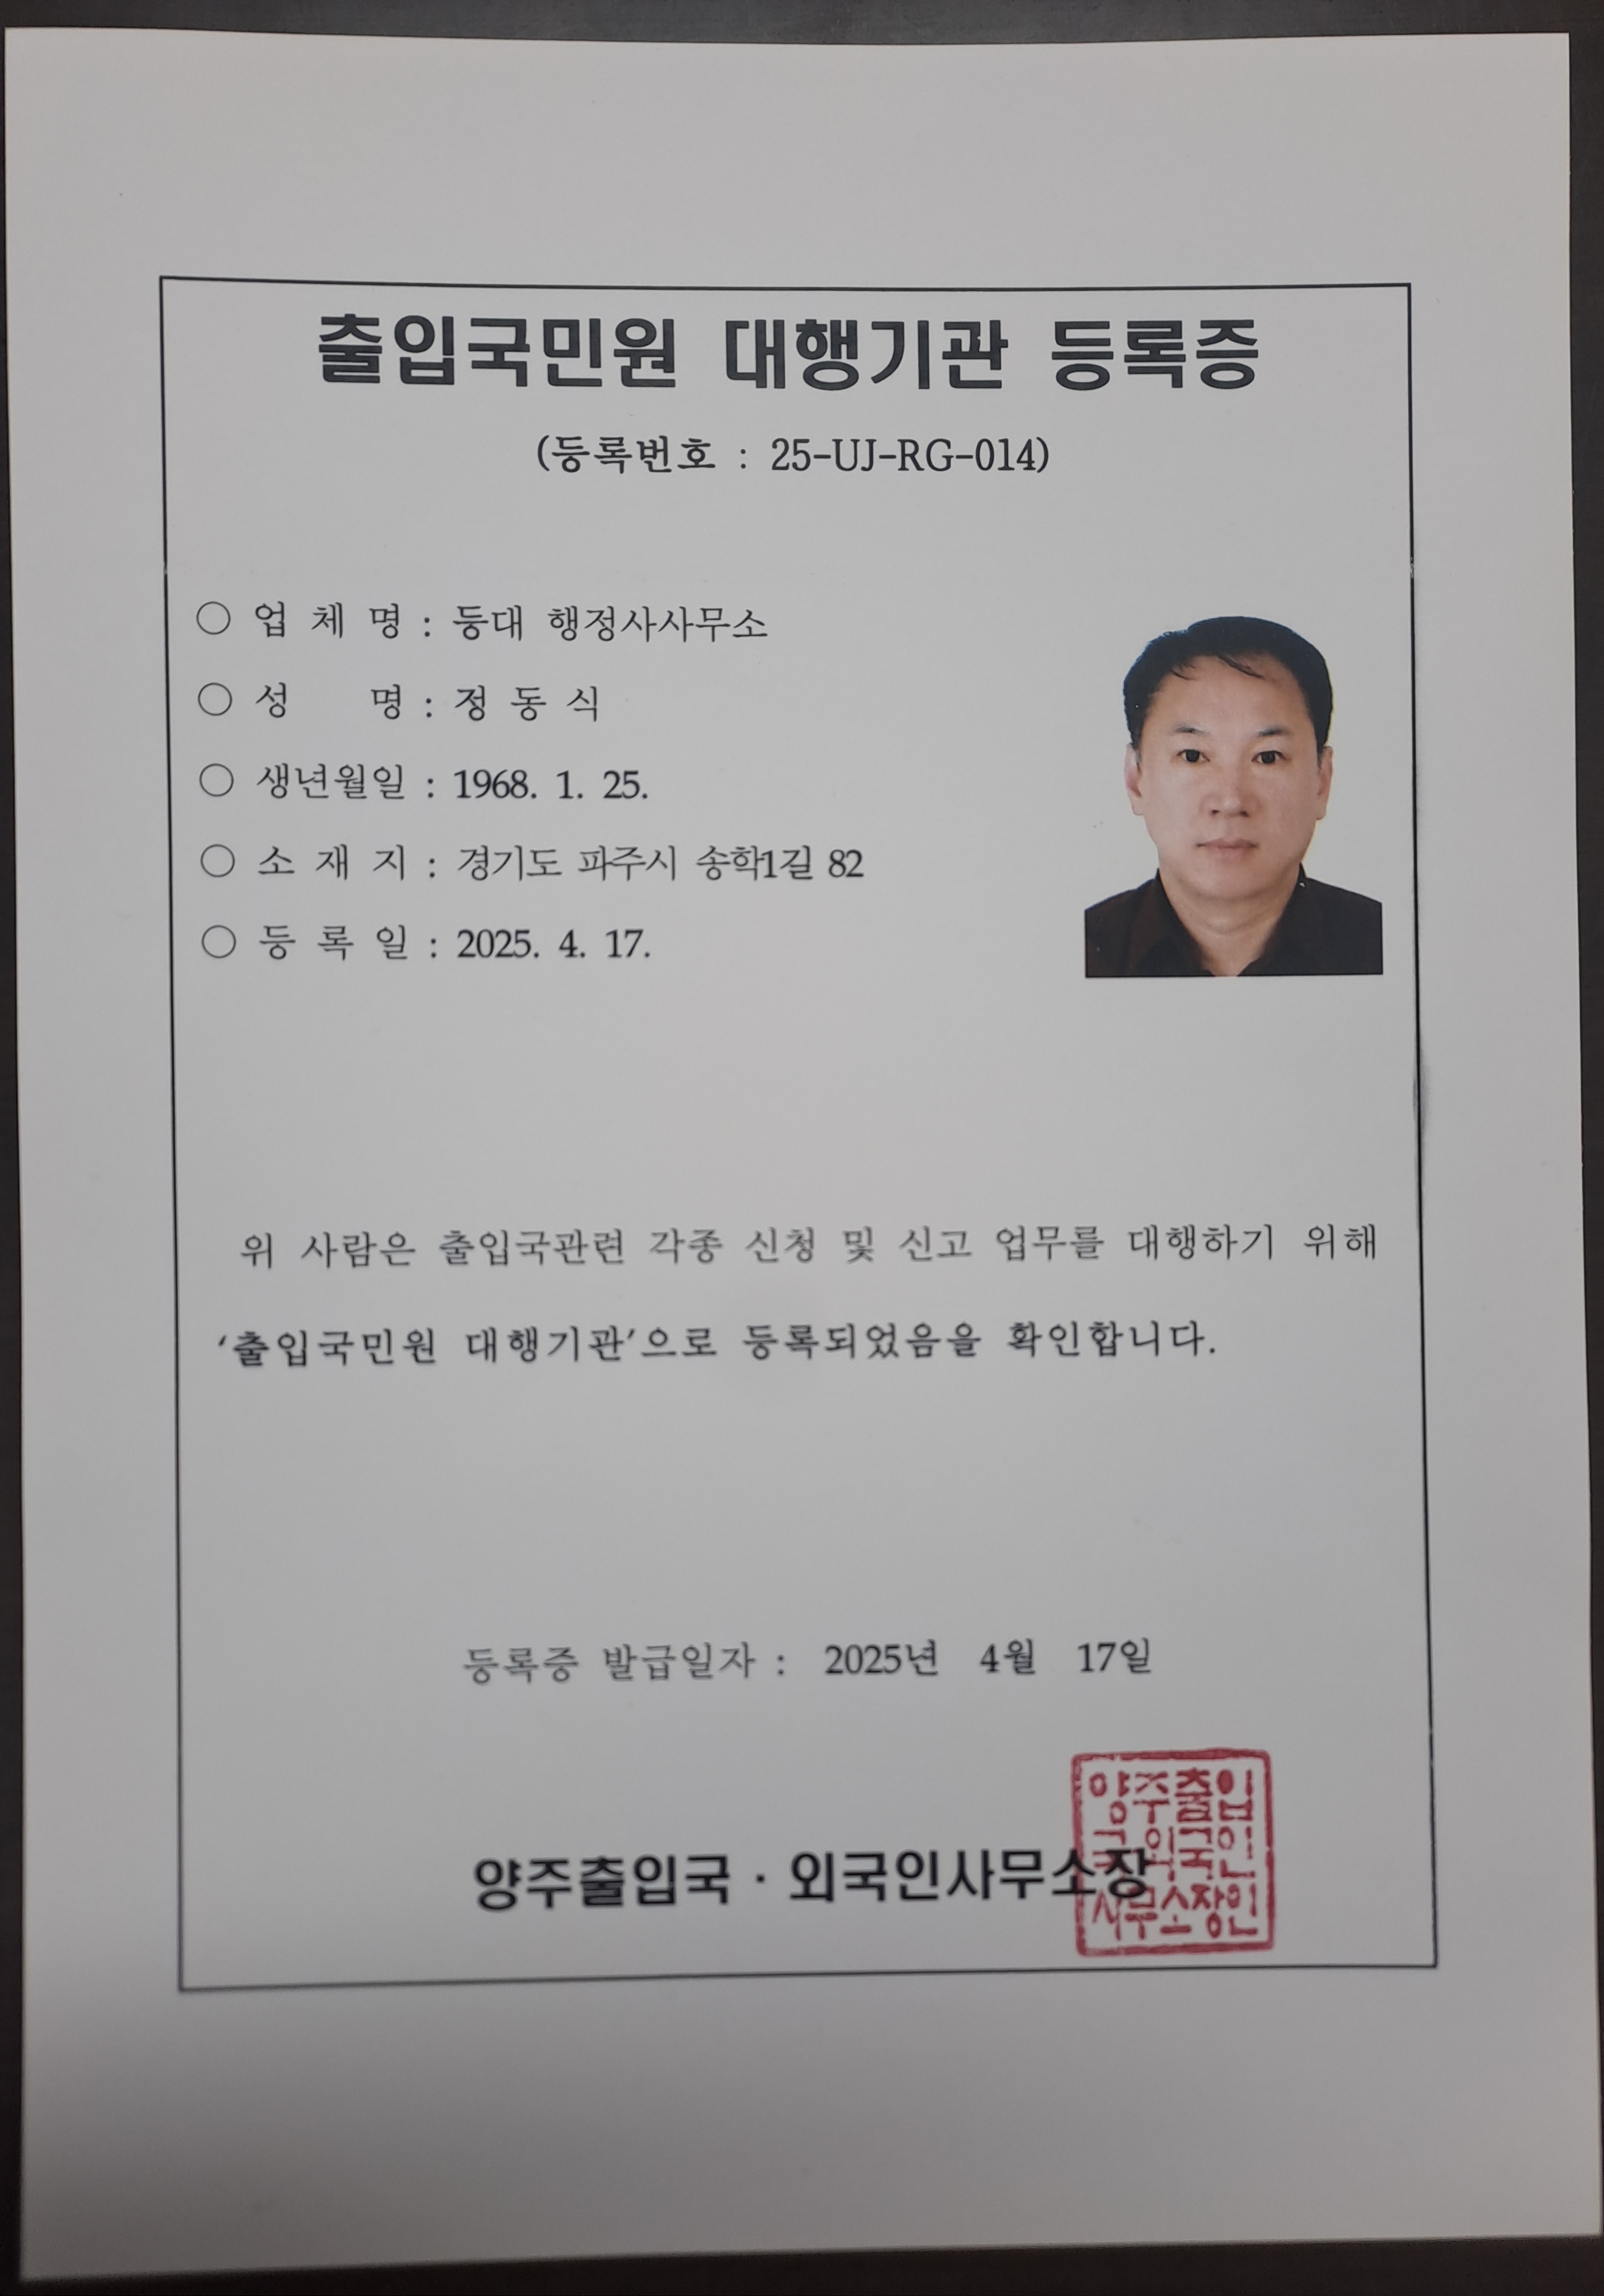 출입국민원 대행기관 등록증
(등록번호 : 25-UJ-RG-014)
○ 업 체 명 : 등대 행정사사무소
○ 성 명 : 정 동 식
○ 생년월일 : 1968. 1. 25.
○ 소 재 지 : 경기도 파주시 송학1길 82
○ 등 록 일 : 2025. 4. 17.
위 사람은 출입국관련 각종 신청 및 신고 업무를 대행하기 위해
‘출입국민원 대행기관’으로 등록되었음을 확인합니다.
등록증 발급일자 : 2025년 4월 17일
양주출입국 · 외국인사무소장
양주출입
국외국인
사무소장인